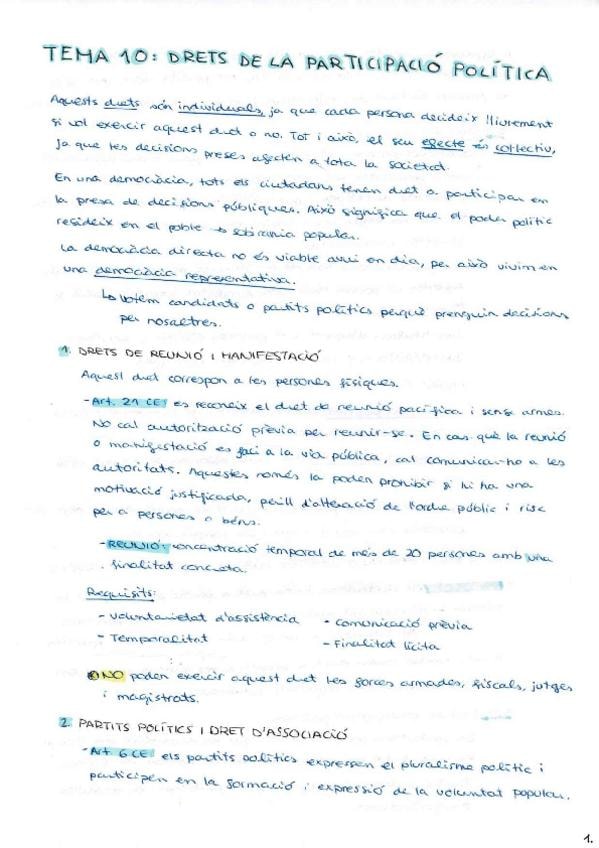 TEMA 10: DRETS DE LA PARTICIPACIÓ POLÍTICA
Aquests drets són individuals, ja que cada persona decideix lliurement
si vol exercir aquest dret o no. Tot i això, el seu efecte és col·lectiu,
ja que les decisions preses afecten a tota la societat.
En una democràcia, tots els ciutadans tenen dret a participar en
la presa de decisions públiques. Això significa que el poder polític
resideix en el poble → sobirania popular.
La democràcia directa no és viable avui en dia, per això vivim en
una democràcia representativa.
↳ Votem candidats o partits polítics perquè prenguin decisions
per nosaltres.
1. DRETS DE REUNIÓ I MANIFESTACIÓ
Aquest dret correspon a les persones físiques.
- Art. 21 CE: es reconeix el dret de reunió pacífica i sense armes.
No cal autorització prèvia per reunir-se. En cas què la reunió
o manifestació es faci a la via pública, cal comunicar-ho a les
autoritats. Aquestes només la poden prohibir si hi ha una
motivació justificada, perill d'alteració de l'ordre públic i risc
per a persones o béns.
- REUNIÓ: concentració temporal de més de 20 persones amb una
finalitat concreta.
Requisits:
- Voluntarietat d'assistència - Comunicació prèvia
- Temporalitat - Finalitat lícita
NO poden exercir aquest dret les forces armades, fiscals, jutges
i magistrats.
2. PARTITS POLÍTICS I DRET D'ASSOCIACIÓ
- Art. 6 CE: els partits polítics expressen el pluralisme polític i
participen en la formació i expressió de la voluntat popular.
1.